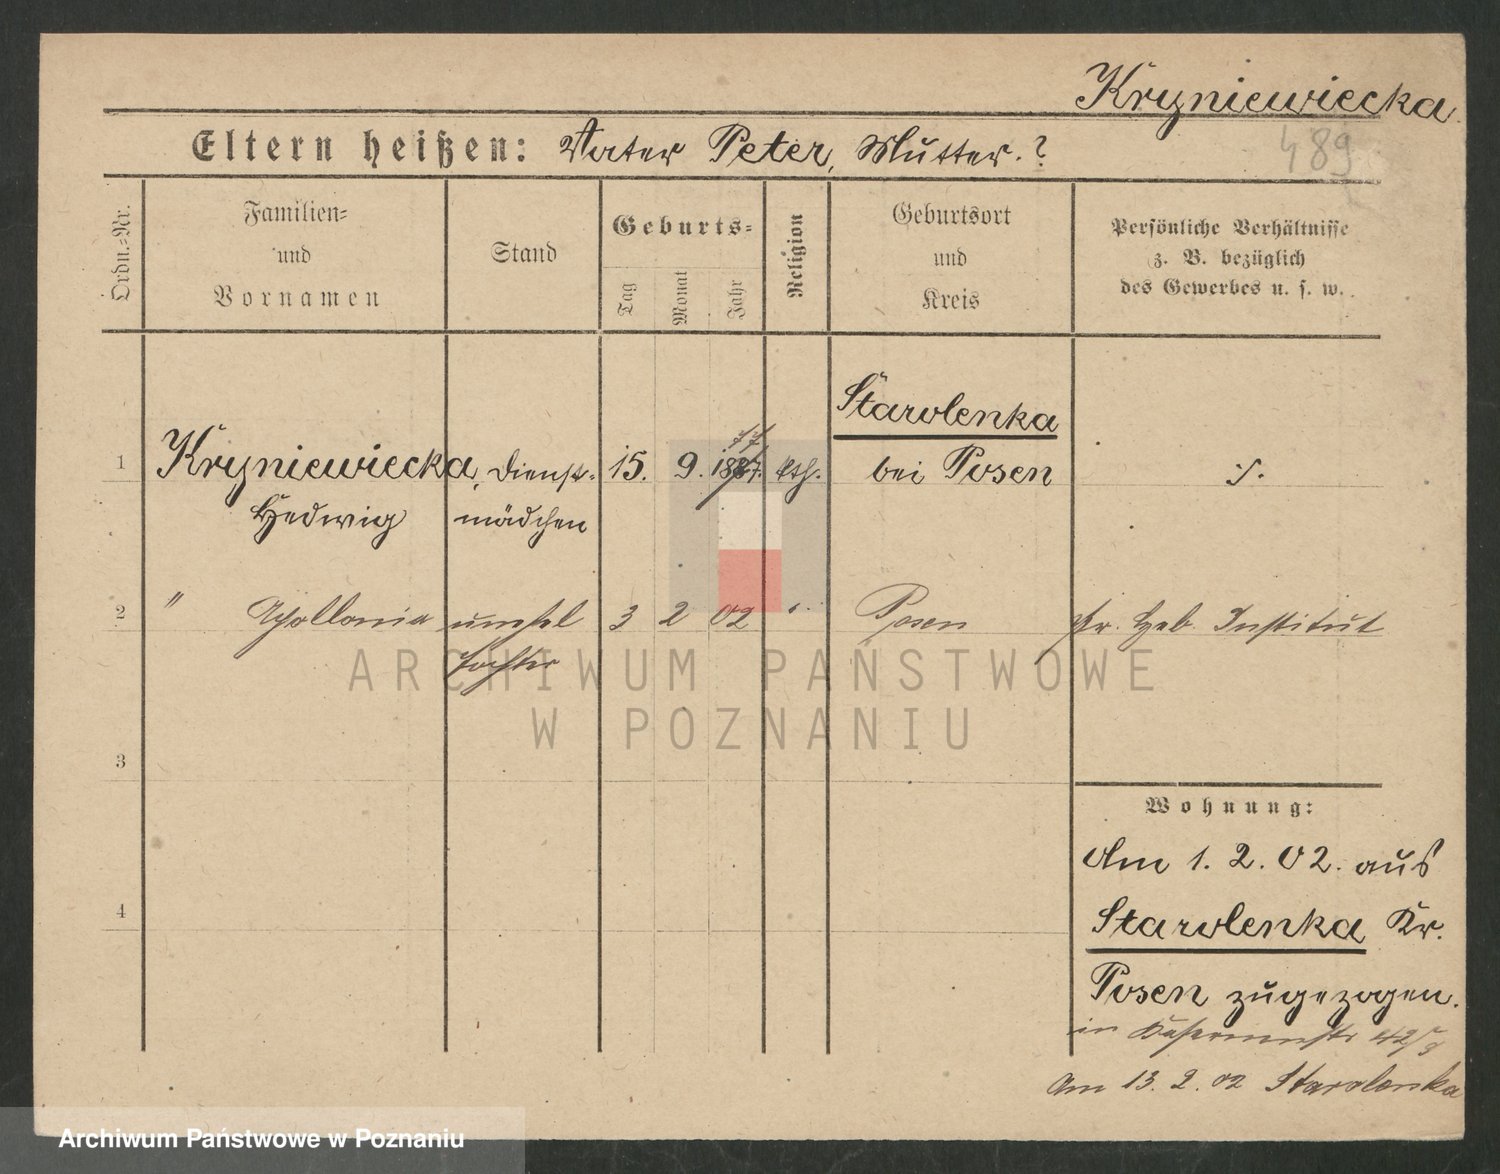 Kryniewiecka.
489
Eltern heißen: Vater Peter, Mutter.?
Ordn.=Nr.
Familien=
und
Vornamen
Stand
Geburts=
Tag
Monat
Jahr
Religion
Geburtsort
und
Kreis
Persönliche Verhältnisse
z. B. bezüglich
des Gewerbes u. s. w.
Starolenka
77
1 Kryniewiecka, Dienst- 15. 9. 1887. kth. bei Posen ·/.
Hedwig mädchen
2 " Apollonia unehel 3 2 02 " Posen Pr. Heb. Institut
Tochter
ARCHIWUM PAŃSTWOWE
W POZNANIU
3
Wohnung:
Am 1. 2. 02. aus
4
Starolenka Kr.
Posen zugezogen.
in
Am 13. 2. 02 Starolenka
Archiwum Państwowe w Poznaniu